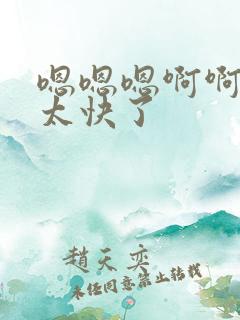 嗯嗯嗯啊啊
太快了
赵天奕
未经同意禁止转载